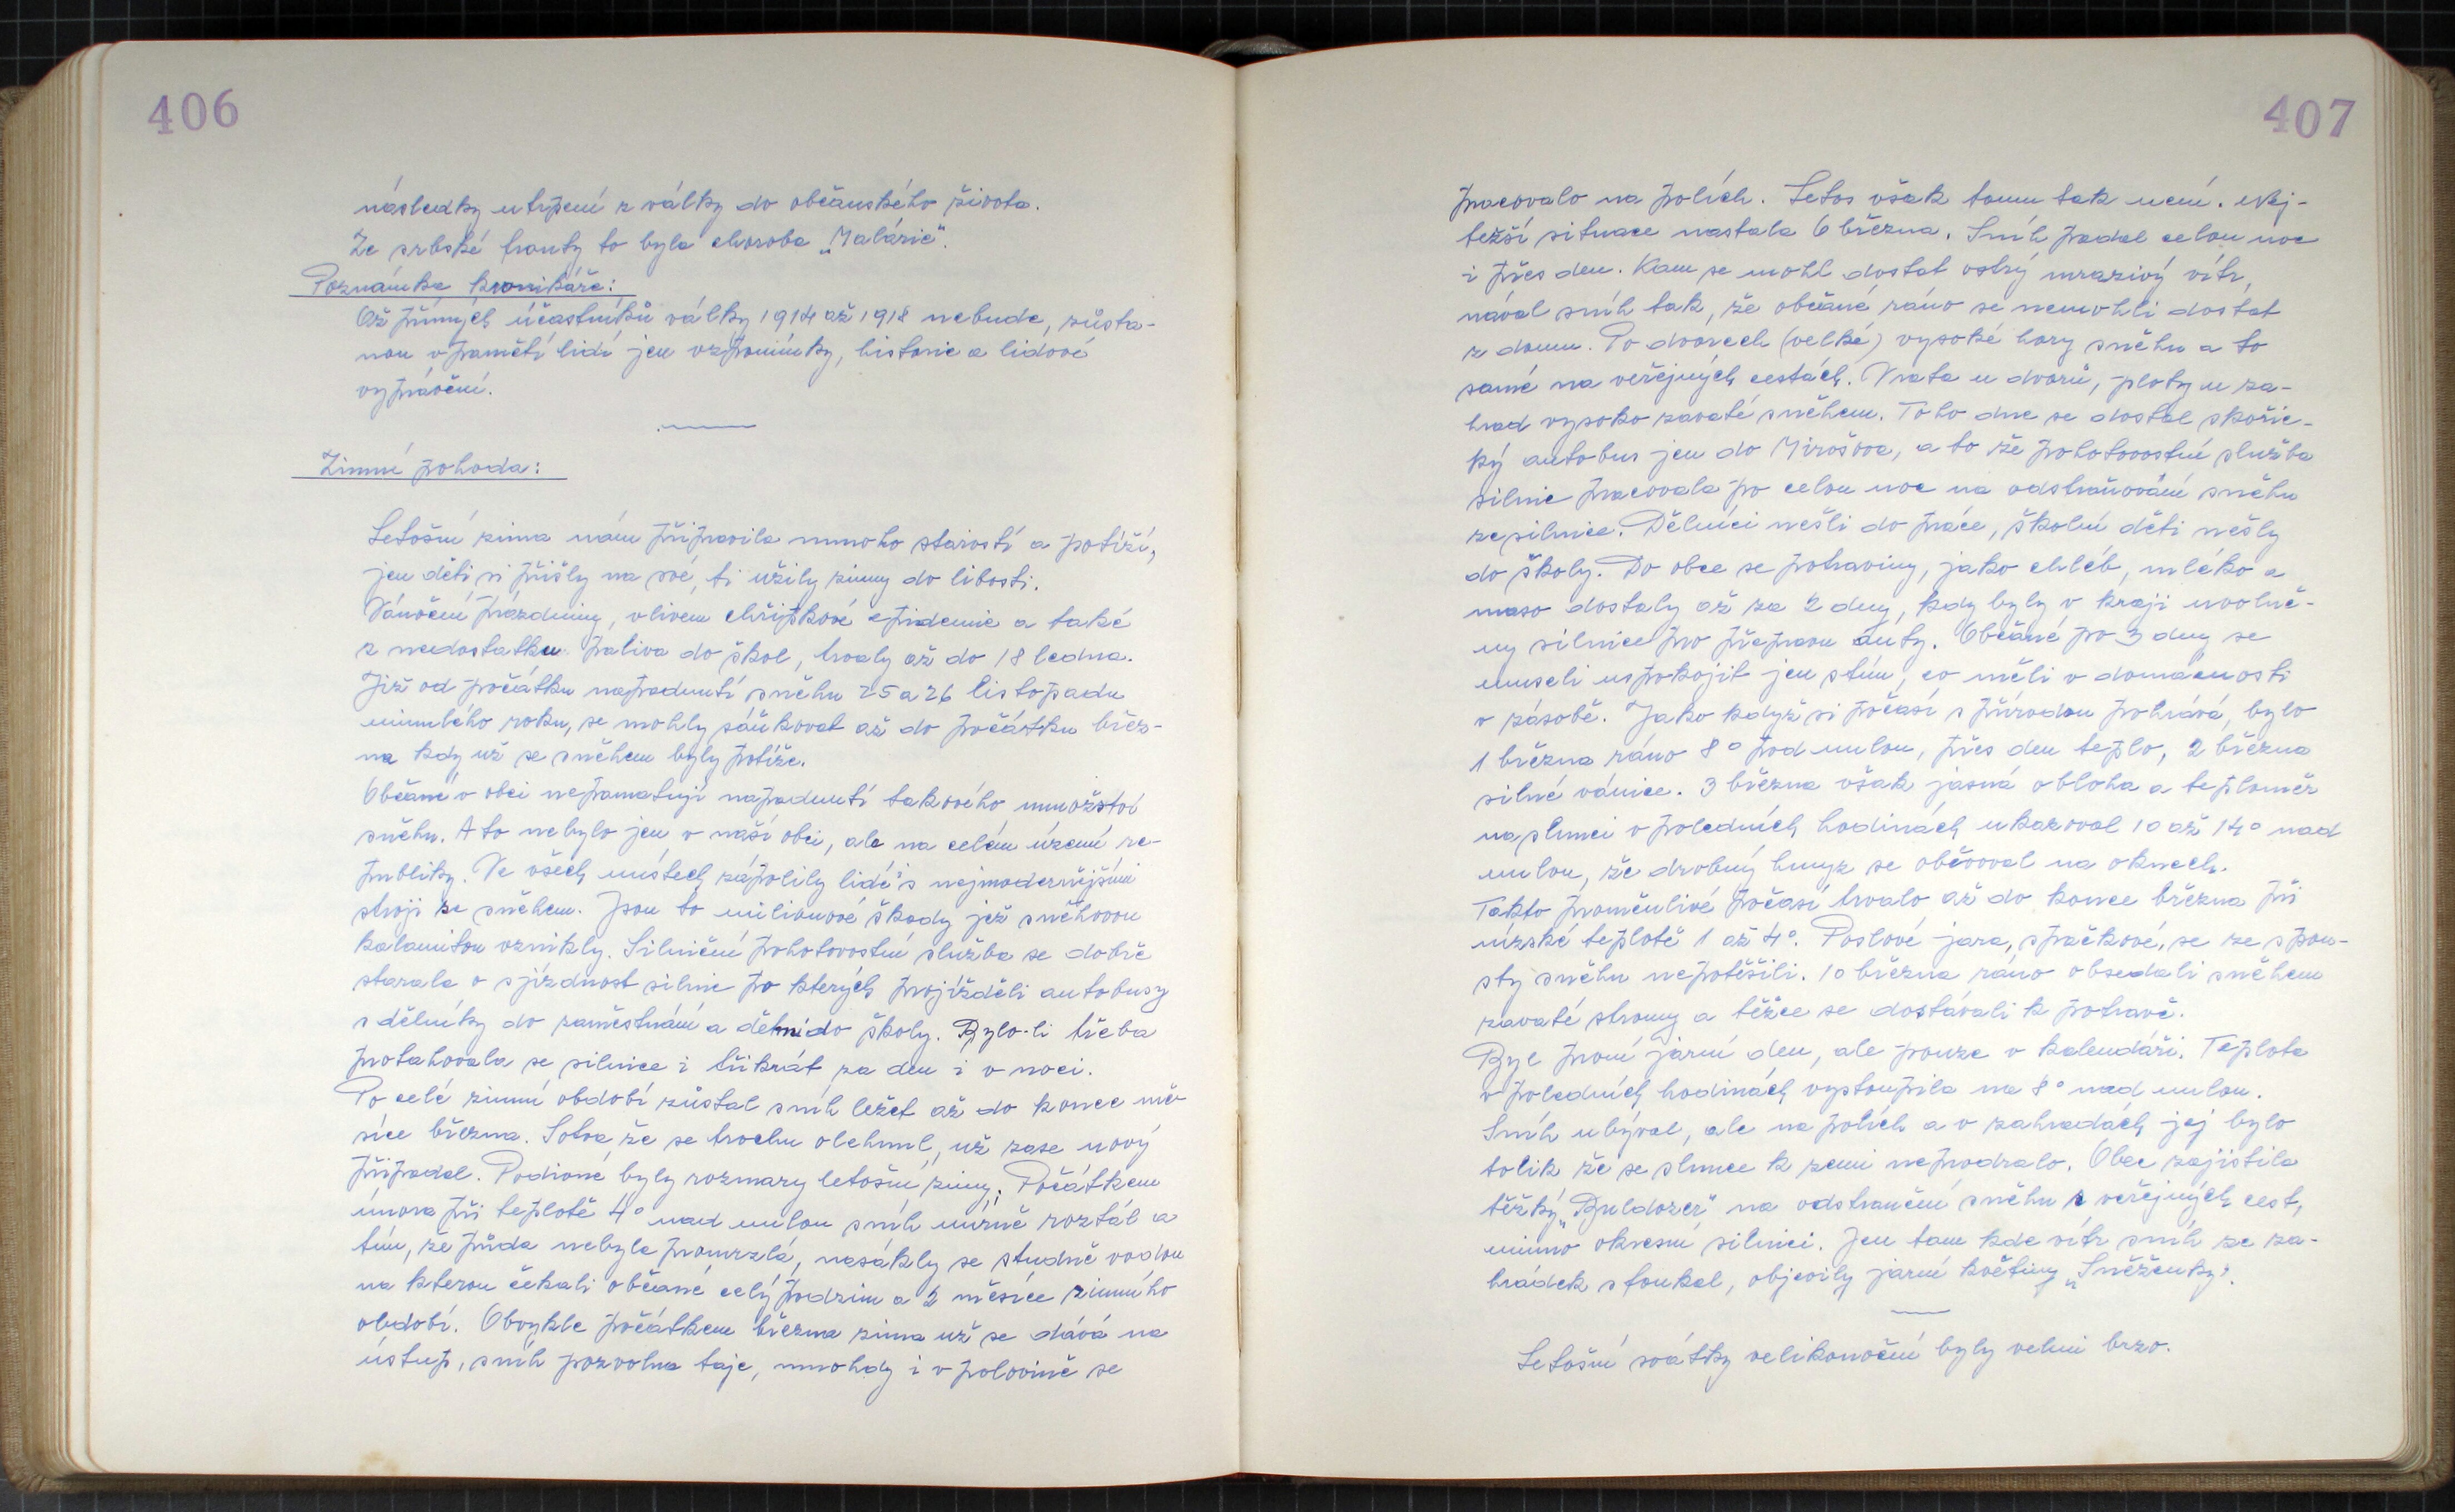 406
následky utrpení z války do občanského života.
Ze srbské fronty to byla choroba „Malárie".
Poznámka kronikáře:
Až přímých účastníků války 1914 až 1918 nebude, zůsta-
nou v paměti lidí jen vzpomínky, historie a lidové
vyprávění.
Zimní pohoda:
Letošní zima nám připravila mnoho starostí a potíží,
jen děti si přišly na své, ti užily zimy do libosti.
Vánoční prázdniny, vlivem chřipkové epidemie a také
z nedostatku paliva do škol, trvaly až do 18 ledna.
Již od počátku napadnutí sněhu 25 a 26 listopadu
minulého roku, se mohly sáňkovat až do počátku břez-
na kdy už se sněhem byly potíže.
Občané v obci nepamatují napadnutí takového množství
sněhu. A to nebylo jen v naší obci, ale na celém území re-
publiky. Ve všech místech zápolily lidé s nejmodernějšími
stroji se sněhem. Jsou to milionové škody jež sněhovou
kalamitou vznikly. Silniční pohotovostní služba se dobře
starala o sjízdnost silnic po kterých projížděli autobusy
s dělníky do zaměstnání a dětmi do školy. Bylo-li třeba
protahovala se silnice i třikrát za den i v noci.
Po celé zimní období zůstal sníh ležet až do konce mě-
síce března. Sotva že se trochu olehnul, už zase nový
připadal. Podivné byly rozmary letošní zimy. Počátkem
února při teplotě 4° nad nulou sníh mírně roztál a
tím, že půda nebyla promrzlá, nasákly se studně vodou
na kterou čekali občané celý podzim a 2 měsíce zimního
období. Obvykle počátkem března zima už se dává na
ústup, sníh pozvolna taje, mnohdy i v polovině se
407
pracovalo na polích. Letos však tomu tak není. Nej-
težší situace nastala 6 března. Sníh padal celou noc
i přes den. Kam se mohl dostat ostrý mrazivý vítr,
nával sníh tak, že občané ráno se nemohli dostat
z domu. Po dvorech (velké) vysoké hory sněhu a to
samé na veřejných cestách. Vrata u dvorů, ploty u za-
hrad vysoko zavaté sněhem. Toho dne se dostal skořic-
ký autobus jen do Mirošova, a to že pohotovostní služba
silnic pracovala po celou noc na odstraňování sněhu
ze silnice. Dělníci nešli do práce, školní děti nešly
do školy. Do obce se potraviny, jako chléb, mléko a
maso dostaly až za 2 dny, kdy byly v kraji uvolně-
ny silnice pro přepravu auty. Občané po 3 dny se
museli uspokojit jen stím, co měli v domácnosti
v zásobě. Jako když si počasí s přírodou pohrává, bylo
1 března ráno 8° pod nulou, přes den teplo, 2 března
silné vánice. 3 března však jasná obloha a teploměr
na slunci v poledních hodinách ukazoval 10 až 14° nad
nulou, že drobný hmyz se oběvoval na oknech.
Takto proměnlivé počasí trvalo až do konce března při
nízské teplotě 1 až 4°. Poslové jara, špačkové, se ze spou-
sty sněhu nepotěšili. 10 března ráno obsedali sněhem
zavaté stromy a těžce se dostávali k potravě.
Byl první jarní den, ale pouze v kalendáři. Teplota
v poledních hodinách vystoupila na 8° nad nulou.
Sníh ubýval, ale na polích a v zahradách jej bylo
tolik že se slunce k zemi neprodralo. Obec zajistila
těžký „Buldozer" na odstranění sněhu z veřejných cest,
mimo okresní silnici. Jen tam kde vítr sníh ze za-
hrádek sfoukal, objevily jarní květiny „Sněženky".
Letošní svátky velikonoční byly velmi brzo.